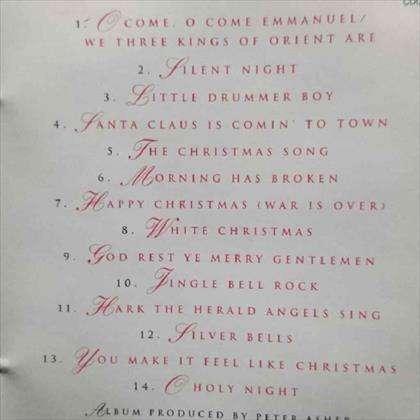 1. O COME, O COME EMMANUEL/
WE THREE KINGS OF ORIENT ARE
2. SILENT NIGHT
3. LITTLE DRUMMER BOY
4. SANTA CLAUS IS COMIN' TO TOWN
5. THE CHRISTMAS SONG
6. MORNING HAS BROKEN
7. HAPPY CHRISTMAS (WAR IS OVER)
8. WHITE CHRISTMAS
9. GOD REST YE MERRY GENTLEMEN
10. JINGLE BELL ROCK
11. HARK THE HERALD ANGELS SING
12. SILVER BELLS
13. YOU MAKE IT FEEL LIKE CHRISTMAS
14. O HOLY NIGHT
ALBUM PRODUCED BY PETER ASHER